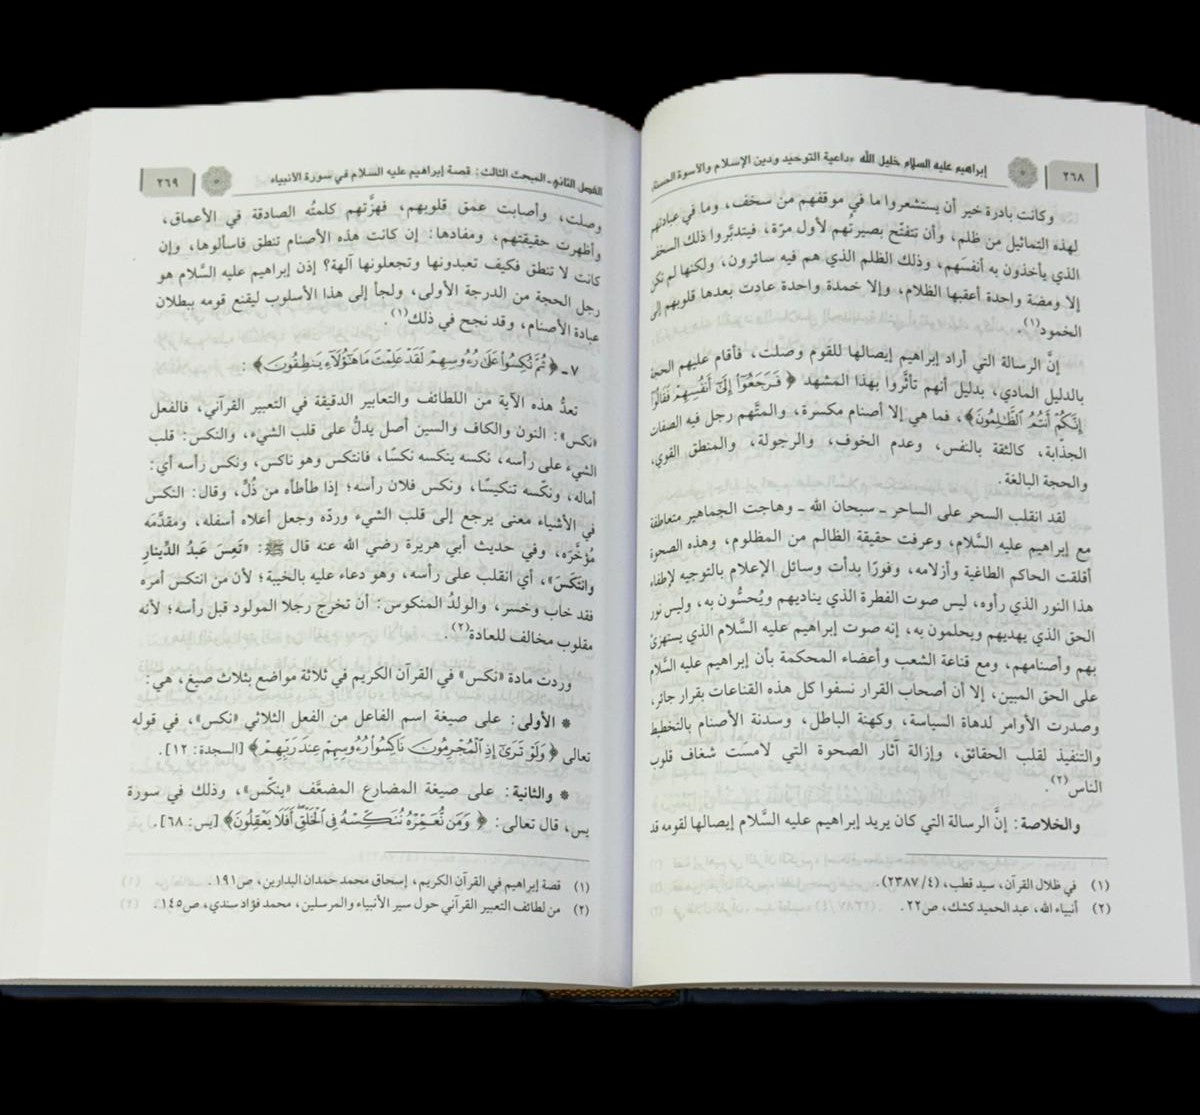 ٢٦٨
إبراهيم عليه السلام خليل الله داعية التوحيد ودين الإسلام والأسوة الحسنة
وكانت بادرة خير أن يستشعروا ما في موقفهم من سخف، وما في عبادتهم
لهذه التماثيل من ظلم، وأن تتفتّح بصيرتهم لأول مرّة، فيتدبَّروا ذلك السخف
الذي يأخذون به أنفسَهم، وذلك الظلم الذي هم فيه سائرون، ولكنها لم تكن
إلا ومضة واحدة أعقبها الظلام، وإلا خمدة واحدة عادت بعدها قلوبهم إلى
الخمود(١).
إنَّ الرسالة التي أراد إبراهيم إيصالها للقوم وصلت، فأقام عليهم الحجة
بالدليل المادي، بدليل أنهم تأثَّروا بهذا المشهد ﴿فَرَجَعُوٓا۟ إِلَىٰٓ أَنفُسِهِمْ فَقَالُوٓا۟
إِنَّكُمْ أَنتُمُ ٱلظَّـٰلِمُونَ﴾، فما هي إلا أصنام مكسرة، والمتَّهم رجل فيه الصفات
الجذّابة، كالثقة بالنفس، وعدم الخوف، والرجولة، والمنطق القوي،
والحجة البالغة.
لقد انقلب السحر على الساحر ـ سبحان الله ـ وهاجت الجماهير متعاطفة
مع إبراهيم عليه السَّلام، وعرفت حقيقة الظالم من المظلوم، وهذه الصحوة
أقلقت الحاكم الطاغية وأزلامه، وفورًا بدأت وسائل الإعلام بالتوجيه لإطفاء
هذا النور الذي رأوه، ليس صوت الفطرة الذي يناديهم ويُحسُّون به، وليس نور
الحق الذي يهديهم ويحلمون به، إنه صوت إبراهيم عليه السَّلام الذي يستهزئ
بهم وأصنامهم، ومع قناعة الشعب وأعضاء المحكمة بأن إبراهيم عليه السَّلام
على الحق المبين، إلا أن أصحاب القرار نسفوا كل هذه القناعات بقرار جائر،
وصدرت الأوامر لدهاة السياسة، وكهنة الباطل، وسدنة الأصنام بالتخطيط
والتنفيذ لقلب الحقائق، وإزالة آثار الصحوة التي لامسَت شغاف قلوب
الناس(٢).
والخلاصة: إنَّ الرسالة التي كان يريد إبراهيم عليه السَّلام إيصالها لقومه قد
(١) في ظلال القرآن، سيد قطب، (٢٣٨٧/٤).
(٢) أنبياء الله، عبد الحميد كشك، ص٢٢.
الفصل الثاني ـ المبحث الثالث: قصة إبراهيم عليه السلام في سورة الأنبياء
٢٦٩
وصلت، وأصابت عمق قلوبهم، فهزَّتهم كلمتُه الصادقة في الأعماق،
وأظهرت حقيقتهم، ومفادها: إن كانت هذه الأصنام تنطق فاسألوها، وإن
كانت لا تنطق فكيف تعبدونها وتجعلونها آلهة؟ إذن إبراهيم عليه السَّلام هو
رجل الحجة من الدرجة الأولى، ولجأ إلى هذا الأسلوب ليقنع قومه ببطلان
عبادة الأصنام، وقد نجح في ذلك(١).
٧ـ ﴿ثُمَّ نُكِسُوا۟ عَلَىٰ رُءُوسِهِمْ لَقَدْ عَلِمْتَ مَا هَـٰٓؤُلَآءِ يَنطِقُونَ﴾:
تعدُّ هذه الآية من اللطائف والتعابير الدقيقة في التعبير القرآني، فالفعل
«نكس»: النون والكاف والسين أصل يدلُّ على قلب الشيء، والنكس: قلب
الشيء على رأسه، نكسه ينكسه نكسًا، فانتكس وهو ناكس، ونكس رأسه أي:
أماله، ونكّسه تنكيسًا، ونكس فلان رأسه؛ إذا طأطأه من ذُلٍّ، وقال: النكس
في الأشياء معنى يرجع إلى قلب الشيء وردّه وجعل أعلاه أسفله، ومقدَّمَه
مُؤخَّرَه، وفي حديث أبي هريرة رضي الله عنه قال ﷺ: «تَعِسَ عَبدُ الدِّينارِ
وانتَكَسَ»، أي انقلب على رأسه، وهو دعاء عليه بالخيبة؛ لأن من انتكس أمره
فقد خاب وخسر، والولدُ المنكوس: أن تخرج رجلا المولود قبل رأسه؛ لأنه
مقلوب مخالف للعادة(٢).
وردت مادة «نكس» في القرآن الكريم في ثلاثة مواضع بثلاث صيغ، هي:
* الأولى: على صيغة اسم الفاعل من الفعل الثلاثي «نكس»، في قوله
تعالى ﴿وَلَوْ تَرَىٰٓ إِذِ ٱلْمُجْرِمُونَ نَاكِسُوا۟ رُءُوسِهِمْ عِندَ رَبِّهِمْ﴾ [السجدة: ١٢].
* والثانية: على صيغة المضارع المضعَّف «ينكّس»، وذلك في سورة
يس، قال تعالى: ﴿وَمَن نُّعَمِّرْهُ نُنَكِّسْهُ فِى ٱلْخَلْقِ أَفَلَا يَعْقِلُونَ﴾ [يس: ٦٨].
(١) قصة إبراهيم في القرآن الكريم، إسحاق محمد حمدان البدارين، ص١٩١.
(٢) من لطائف التعبير القرآني حول سير الأنبياء والمرسلين، محمد فؤاد سندي، ص١٤٥.